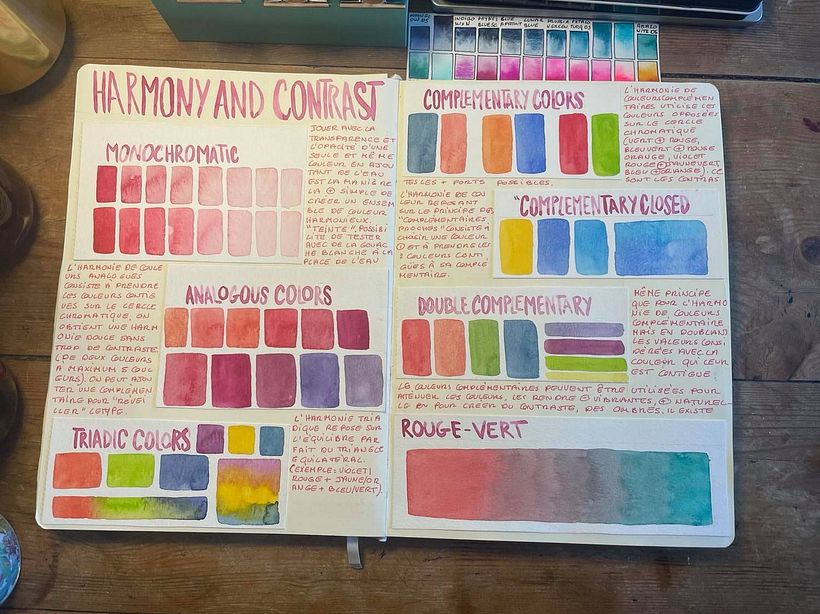 HARMONY AND CONTRAST
MONOCHROMATIC
JOUER AVEC LA
TRANSPARENCE ET
L'OPACITÉ D'UNE
SEULE ET MÊME
COULEUR EN AJOU
TANT DE L'EAU
EST LA MANIÈRE
LA ⊕ SIMPLE DE
CRÉER UN ENSEM
BLE DE COULEUR
HARMONIEUX.
"TEINTE", POSSIBI
LITÉ DE TESTER
AVEC DE LA GOUAC
HE BLANCHE À LA
PLACE DE L'EAU
L'HARMONIE DE COULE
URS ANALOGUES
CONSISTE A PRENDRE
LES COULEURS CONTIG
UËS SUR LE CERCLE
CHROMATIQUE, ON
OBTIENT UNE HARM
ONIE DOUCE SANS
TROP DE CONTRASTE.
(DE DEUX COULEURS
A MAXIMUM 5 COUL
EURS). ON PEUT AJOU
TER UNE COMPLÉMEN
TAIRE POUR "RÉVEI
LLER" LE TYPE.
ANALOGOUS COLORS
TRIADIC COLORS
L'HARMONIE TRIA
DIQUE REPOSE SUR
L'ÉQUILIBRE PAR
FAIT DU TRIANGLE
EQUILATERAL.
(EXEMPLE: VIOLET/
ROUGE + JAUNE/OR
ANGE + BLEU/VERT).
INDIGO
BLUE
LUNAR
BLUE
COMPLEMENTARY COLORS
L'HARMONIE DE
COULEURS COMPLÉMEN
TAIRES UTILISE LES
COULEURS OPPOSÉES
SUR LE CERCLE
CHROMATIQUE
(VERT ⊕ ROUGE,
BLEU VERT ⊕ ROUGE
ORANGE, VIOLET
ROUGE ⊕ JAUNE VERT,
BLEU ⊕ ORANGE). CE
SONT LES CONTRAS
TES LES + FORTS POSSIBLES.
L'HARMONIE DE COU
LEUR REPOSANT
SUR LE PRINCIPE DES
"COMPLÉMENTAIRES
PROCHES" CONSISTE À
CHOISIR UNE COULEUR
ET À PRENDRE LES
2 COULEURS CONTI
GUËS À SA COMPLÉ
MENTAIRE.
"COMPLEMENTARY CLOSED
DOUBLE COMPLEMENTARY
MÊME PRINCIPE
QUE POUR L'HARMO
NIE DE COULEURS
COMPLÉMENTAIRE
MAIS EN DOUBLANT
LES VALEURS CONSI
DÉRÉES AVEC LA
COULEUR QUI LEUR
EST CONTIGUE.
LES COULEURS COMPLÉMENTAIRES PEUVENT ÊTRE UTILISÉES POUR
ATTÉNUER LES COULEURS, LES RENDRE ⊖ VIBRANTES, ⊕ NATUREL-
LE OU POUR CREER DU CONTRASTE, DES OMBRES. IL EXISTE
ROUGE-VERT